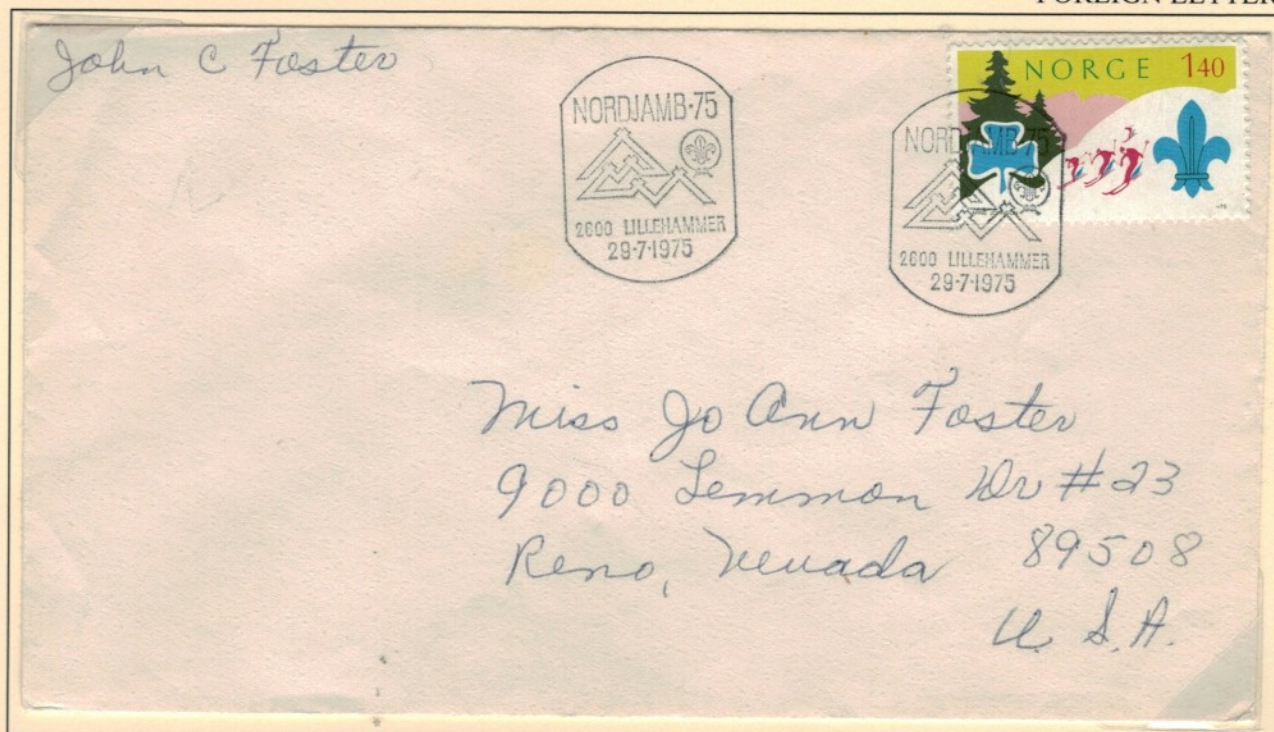 FOREIGN LETTER
John C Foster
NORGE 140
NORDJAMB-75
2600 LILLEHAMMER
29-7-1975
NORDJAMB-75
2600 LILLEHAMMER
29-7-1975
Miss Jo Ann Foster
9000 Lemmon Dr #23
Reno, Nevada 89508
U.S.A.